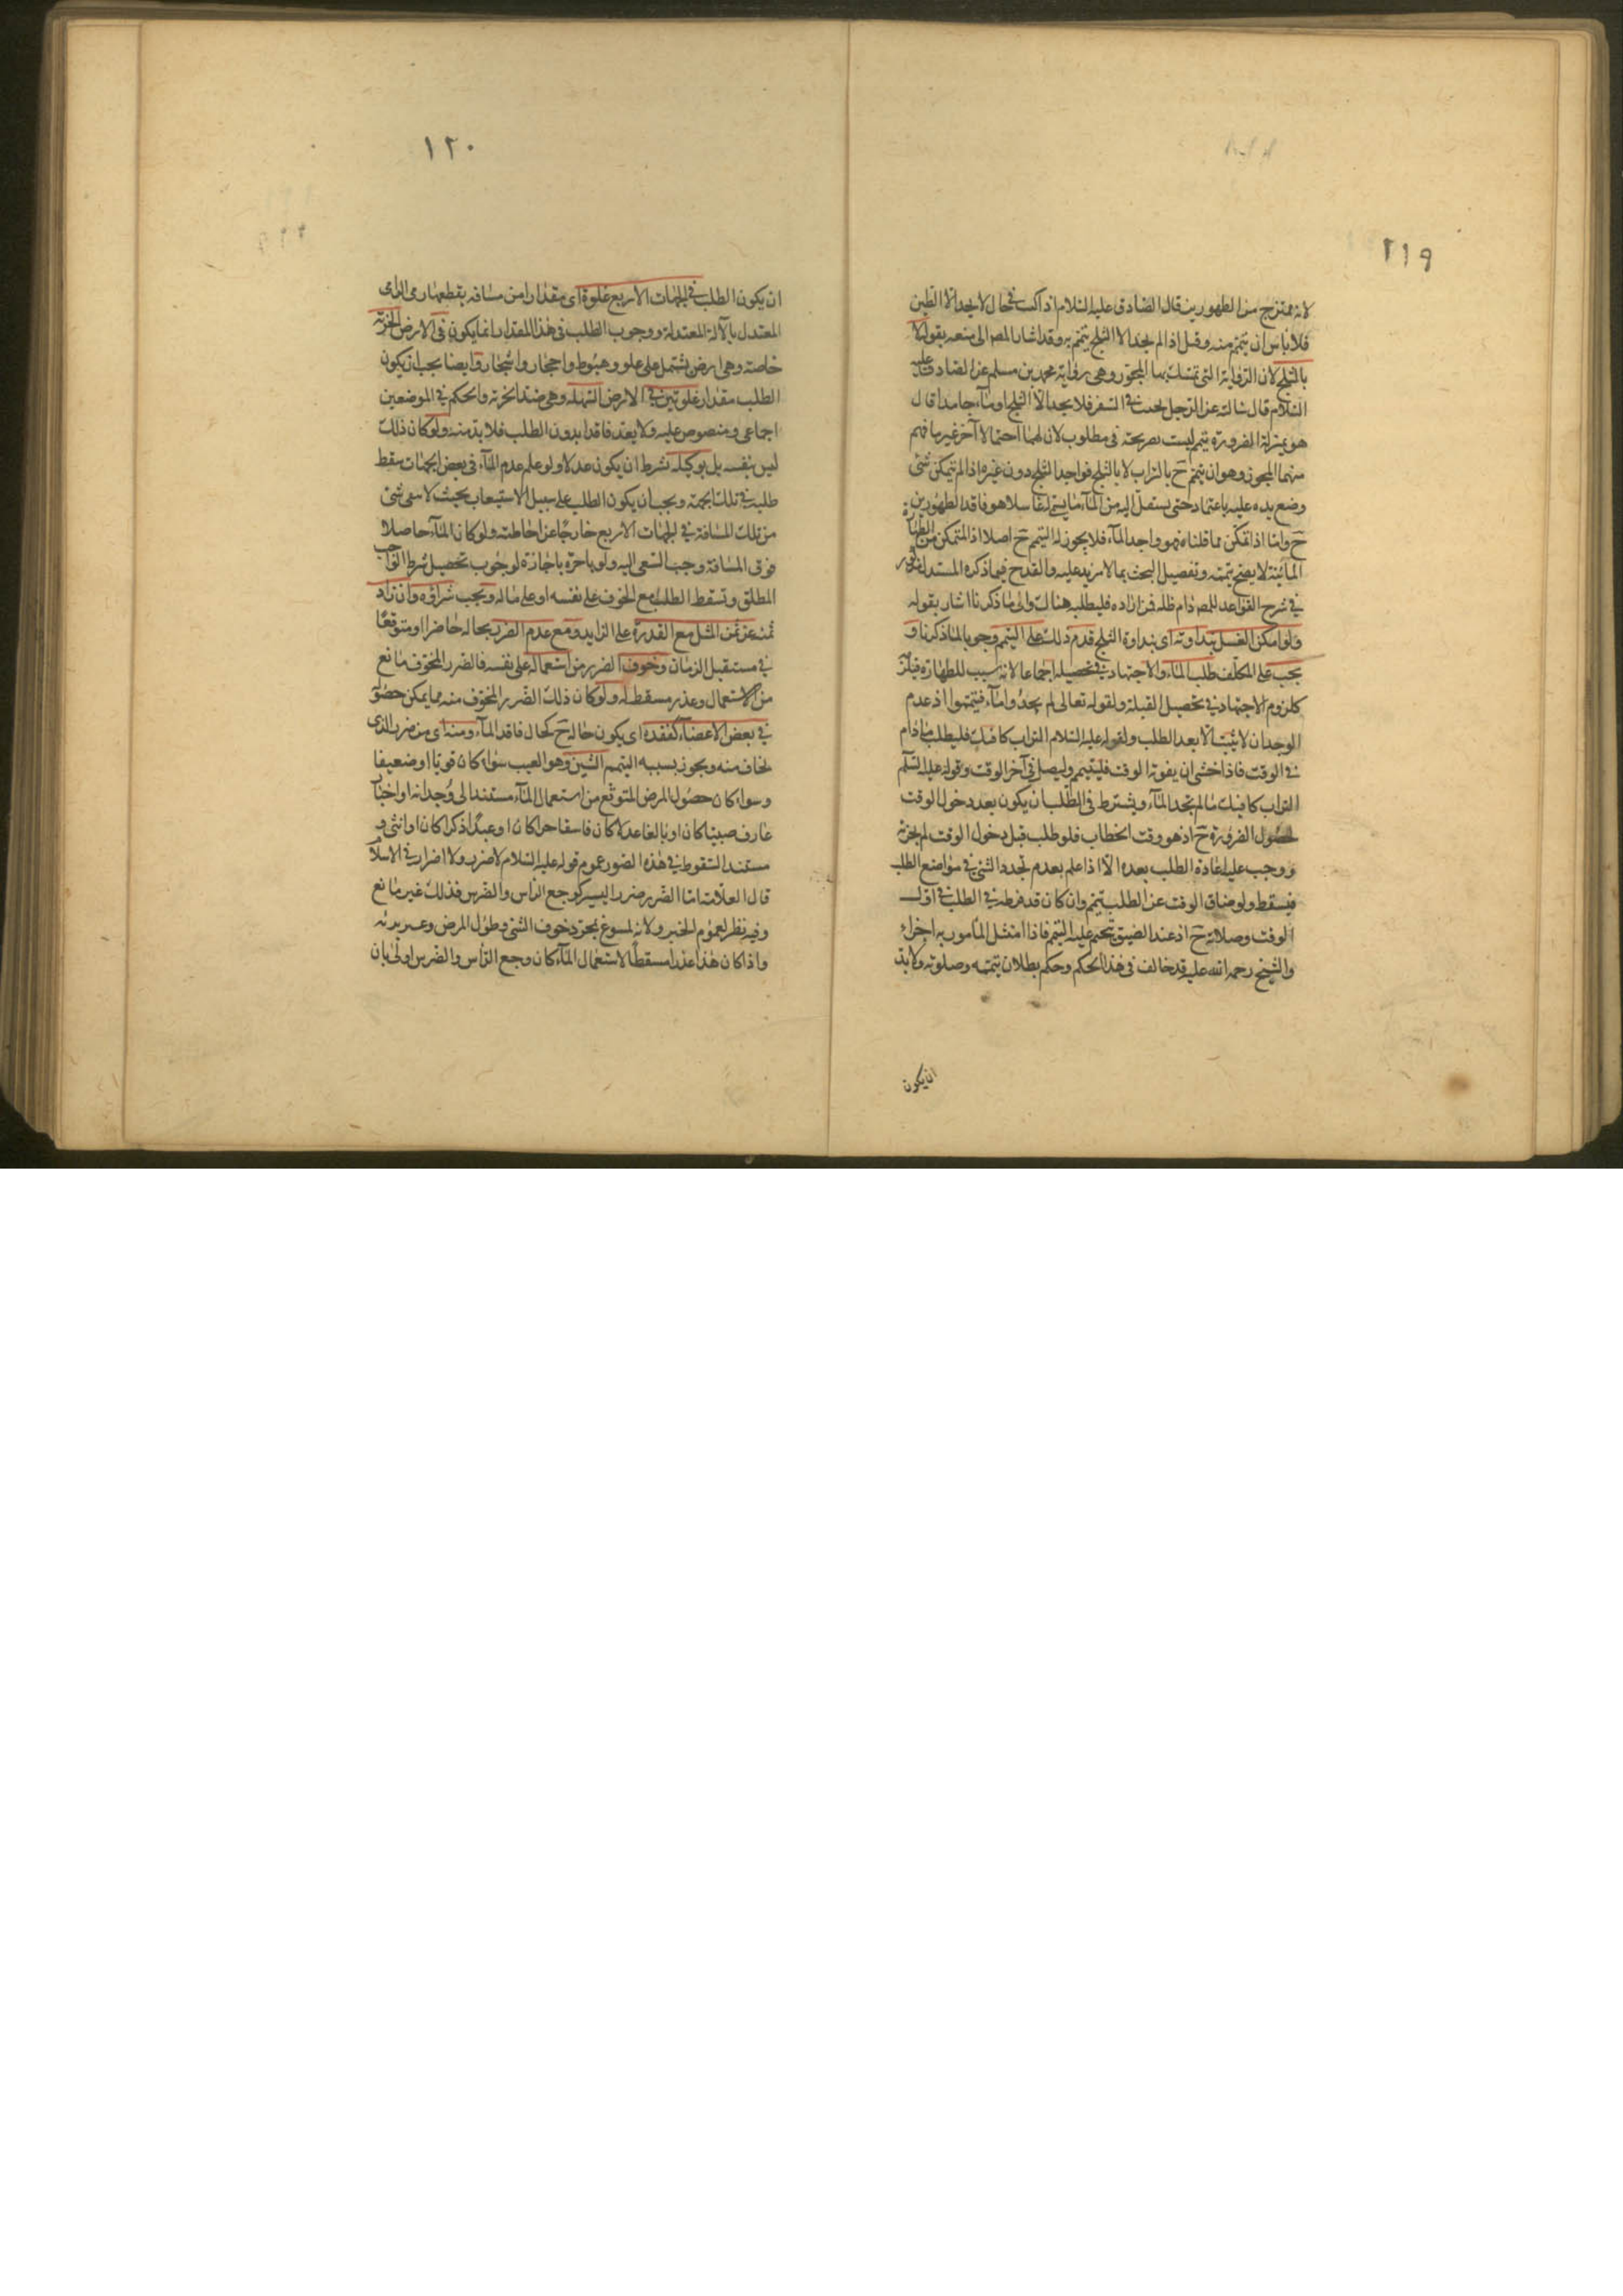 ٢١٩
لانه ممتزج من الطهورين قال الصادق عليه السلام اذا كنت فى حال لا يجد الا الطين
فلا باس ان يتيمم منه وقيل اذا لم يجد الا الثلج يتيمم به وقد اشار المص الى منعه بقوله لا
بالثلج لان الرواية التى تمسك بها المجوز وهى رواية محمد بن مسلم عن الصادق عليه
السلام قال سالته عن الرجل يجنب فى السفر فلا يجد الا الثلج او ماء جامدا قال
هو بمنزلة الضرورة يتيمم ليست صريحة فى مطلوبه لان لهما احتمالا آخر غير ما فهم
منهما المجوز وهو ان يتيمم ح بالتراب لا بالثلج فواجد الثلج دون غيره اذا لم يتمكن شئ
وضع يده عليه باعتماد حتى ينتقل اليه من الماء ما يسمى غاسلا هو فاقد الطهورين
ح واما اذا تمكن مما قلناه فهو واجد الماء فلا يجوز له التيمم ح اصلا اذ المتمكن من الطهارة
المائية لا يصح تيممه وتفصيل البحث بما لا مزيد عليه والقدح فيما ذكره المستدل مذكور
فى شرح القواعد للمص دام ظله فمن اراده فليطلبه هناك والى ما ذكرنا اشار بقوله
ولو امكن الغسل بنداوته اى بنداوة الثلج قدم ذلك على التيمم وجوبا لما ذكرنا و
يجب على المكلف طلب الماء والاجتهاد فى تحصيله اجماعا لانه سبب للطهارة فيلزم
كلزوم الاجتهاد فى تحصيل القبلة ولقوله تعالى لم يجدوا ماء فتيمموا اذ عدم
الوجدان لا يثبت الا بعد الطلب ولقوله عليه السلام التراب كافيك فليطلب ما دام
فى الوقت فاذا خشى ان يفوته الوقت فليتيمم وليصل فى آخر الوقت وقوله عليه السلم
التراب كافيك ما لم تجد الماء ويشترط فى الطلب ان يكون بعد دخول الوقت
لحصول الضرورة ح اذ هو وقت الخطاب فلو طلب قبل دخول الوقت لم يجزئه
ووجب عليه اعادة الطلب بعده الا اذا علم بعدم تجدد الشئ فى مواضع الطلب
فيسقط ولو ضاق الوقت عن الطلب تيمم وان كان قد فرط فى الطلب فى اول
الوقت وصلاته ح اذ عند الضيق تحتم عليه التيمم فاذا امتثل المأمور به اجزاه
والشيخ رحمه الله عليه قد خالف فى هذا الحكم وحكم بطلان تيممه وصلوته ولا بد
ان يكون
١٢٠
ان يكون الطلب فى الجهات الاربع غلوة اى مقدارا من مسافة يقطعها رمى الرامى
المعتدل بالآلة المعتدلة ووجوب الطلب فى هذا المقدار انما يكون فى الارض الحزنة
خاصة وهى ارض تشتمل على علو وهبوط واحجار واشجار وايضا يجب ان يكون
الطلب مقدار غلوتين فى الارض السهلة وهى ضد الحزنة والحكم فى الموضعين
اجماعى ومنصوص عليه ولا يعد فاقدا بدون الطلب فلا بد منه ولو كان ذلك
ليس بنفسه بل بوكيله بشرط ان يكون عدلا ولو علم عدم الماء فى بعض الجهات سقط
طلبه فى تلك الجهة ويجب ان يكون الطلب على سبيل الاستيعاب بحيث لا يبقى شئ
من تلك المسافة فى الجهات الاربع خارجا عن احاطته ولو كان الماء حاصلا
فوق المسافة وجب السعى اليه ولو باجرة باجازة لوجوب تحصيل شرط الواجب
المطلق وتسقط الطلب مع الخوف على نفسه او على ماله ويجب شراؤه وان زاد
ثمنه عن ثمن المثل مع القدرة على الزايد ومع عدم الضرر بحاله حاضرا او متوقعا
فى مستقبل الزمان وخوف الضرر من استعماله على نفسه فالضرر المخوف مانع
من الاستعمال وعذر مسقط له ولو كان ذلك الضرر المخوف منه مما يمكن حصوله
فى بعض الاعضاء كفقده اى يكون حاله ح كحال فاقد الماء ومنه اى من ضرر الذى
يخاف منه ويجوز بسببه التيمم الشين وهو العيب سواء كان قويا او ضعيفا
وسواء كان حصول المرض المتوقع من استعمال الماء مستندا الى وجدانه او اخبار
عارف صبيا كان او بالغا عدلا كان فاسقا حرا كان او عبدا ذكرا كان او انثى و
مستند السقوط فى هذه الصور عموم قوله عليه السلام لا ضرر ولا اضرار فى الاسلام
قال العلامة اما الضرر ضرر اليسير كوجع الراس والضرس فذلك غير مانع
وفيه نظر لعموم الخبر ولانه يسوغ بمجرد خوف الشئ وطول المرض وعسر برئه
واذا كان هذا عذرا مسقطا لاستعمال الماء كان وجع الراس والضرس اولى بان